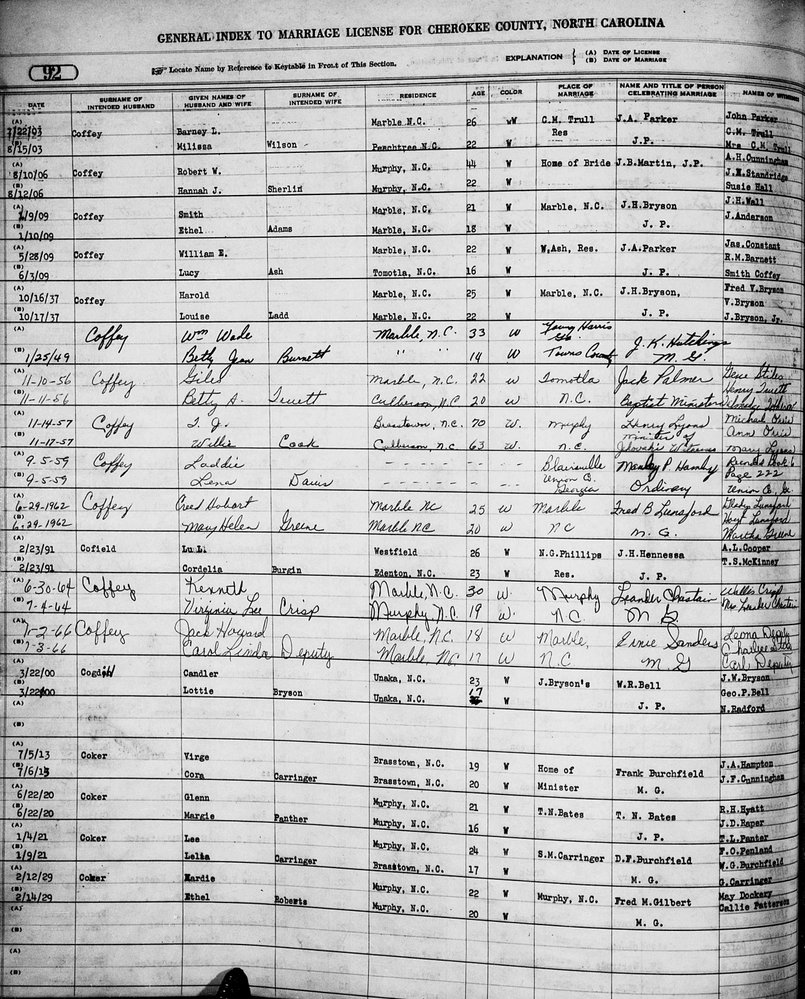 GENERAL INDEX TO MARRIAGE LICENSE FOR CHEROKEE COUNTY, NORTH CAROLINA
92
Locate Name by Reference to Keytable in Front of This Section.
EXPLANATION { (A) DATE OF LICENSE
(B) DATE OF MARRIAGE
DATE SURNAME OF INTENDED HUSBAND GIVEN NAMES OF HUSBAND AND WIFE SURNAME OF INTENDED WIFE RESIDENCE AGE COLOR PLACE OF MARRIAGE NAME AND TITLE OF PERSON CELEBRATING MARRIAGE NAMES OF
(A) 7/22/03 Coffey Barney L. Marble N.C. 26 W C.M. Trull J.A. Parker John Parker
Res C.M. Trull
(B) 8/15/03 Milissa Wilson Peachtree N.C. 22 W J.P. Mrs C.M. Trull
(A) 8/10/06 Coffey Robert W. Murphy, N.C. 44 W Home of Bride J.B.Martin, J.P. A.H.Cunningham
J.W.Standridge
(B) 8/12/06 Hannah J. Sherlin Murphy, N.C. 22 W Susie Hall
(A) 1/9/09 Coffey Smith Marble, N.C. 21 W Marble, N.C. J.H.Bryson J.H.Wall
J.Anderson
(B) 1/10/09 Ethel Adams Marble, N.C. 18 W J. P.
(A) 5/28/09 Coffey William E. Marble, N.C. 22 W W.Ash, Res. J.A.Parker Jas.Constant
R.M.Barnett
(B) 6/3/09 Lucy Ash Tomotla, N.C. 16 W J. P. Smith Coffey
(A) 10/16/37 Coffey Harold Marble, N.C. 25 W Marble, N.C. J.H.Bryson, Fred V.Bryson
V.Bryson
(B) 10/17/37 Louise Ladd Marble, N.C. 22 W J. P. J.Bryson, Jr.
(A) Coffey Wm Wade Marble, N.C. 33 W Young Harris Ga. J.K. Hutchings
(B) 1/25/49 Betty Jean Burnett " " " 14 W Towns County M. G.
(A) 11-10-56 Coffey Giles Marble, N.C. 22 W Tomotla Jack Palmer Stiles
Henry Truett
(B) 11-11-56 Betty A. Truett Culberson, N.C 20 W N.C. Baptist Minister
(A) 11-14-57 Coffey T. J. Brasstown, N.C. 70 W. Murphy Henry Lyons Michael
Minister of Ann
(B) 11-17-57 Willie Cook Culberson, N.C 63 W. N.C. Jehovah's Witnesses Mary Lyons
(A) 9-5-59 Coffey Laddie - - - - - - - Blairsville P. Records Book 6
Union Co. Page 222
(B) 9-5-59 Lena Davis - - - - - - - Georgia Ordinary Union Co., Ga
(A) 6-29-1962 Coffey Cred Hobart Marble NC 25 W Marble Fred B Lunsford Gladys Lunsford
Hoyt Lunsford
(B) 6-29 1962 Mary Helen Greene Marble NC 20 W NC M. G. Martha Greene
(A) 2/23/91 Cofield Lu Li Westfield 26 W N.G.Phillips J.H.Hennessa A.L.Cooper
T.S.McKinney
(B) 2/23/91 Cordelia Burgin Edenton, N.C. 23 W Res. J. P.
(A) 6-30-64 Coffey Kenneth Marble, N.C. 30 W. Murphy Leander Chastain Crisp
(B) 7-4-64 Virginia Lee Crisp Murphy, N.C. 19 W. NC M G Mrs. Leander Chastain
(A) 7-2-66 Coffey Jack Howard Marble, N.C. 18 W Marble, Ernie Sanders Leona
(B) 7-3-66 Carol Linda Deputy Marble, NC 17 W N.C M G Carl Deputy
(A) 3/22/00 Cogdill Candler Unaka, N.C. 23 W J.Bryson's W.R.Bell J.W.Bryson
Geo.P.Bell
(B) 3/22/00 Lottie Bryson Unaka, N.C. 17 W J. P. N.Radford
(A)
(B)
(A) 7/5/13 Coker Virge Brasstown, N.C. 19 W Home of Frank Burchfield J.A.Hampton
J.F.Cunningham
(B) 7/6/13 Cora Carringer Brasstown, N.C. 20 W Minister M. G.
(A) 6/22/20 Coker Glenn Murphy, N.C. 21 W T.N.Bates T. N. Bates R.H.Hyatt
J.D.Raper
(B) 6/22/20 Margie Panther Murphy, N.C. 16 W J. P. T.L.Panter
(A) 1/4/21 Coker Lee Murphy, N.C. 24 W S.M.Carringer D.F.Burchfield F.O.Penland
W.G.Burchfield
(B) 1/9/21 Lelia Carringer Brasstown, N.C. 17 W M. G. G.Carringer
(A) 2/12/29 Coker Hardie Murphy, N.C. 22 W Murphy, N.C. Fred M.Gilbert May Dockery
Callie Patterson
(B) 2/14/29 Ethel Roberts Murphy, N.C. 20 W M. G.
(A)
(B)
(A)
(B)